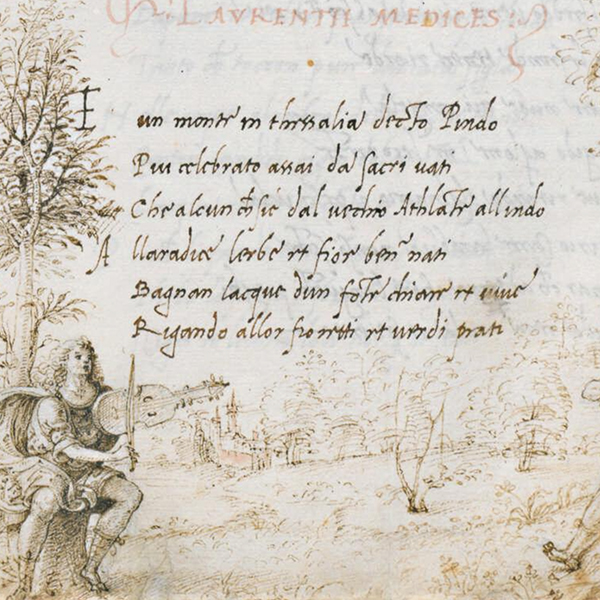 LAVRENTII MEDICES
E un monte in thessalia decto Pindo
Piu celebrato assai da sacri vati
Che alcun ch sie dal vechio Athlate allindo
A llaradice lerbe et fior ben nati
Bagnan lacque dun fote chiare et vive
Rigando allor fioretti et verdi prati